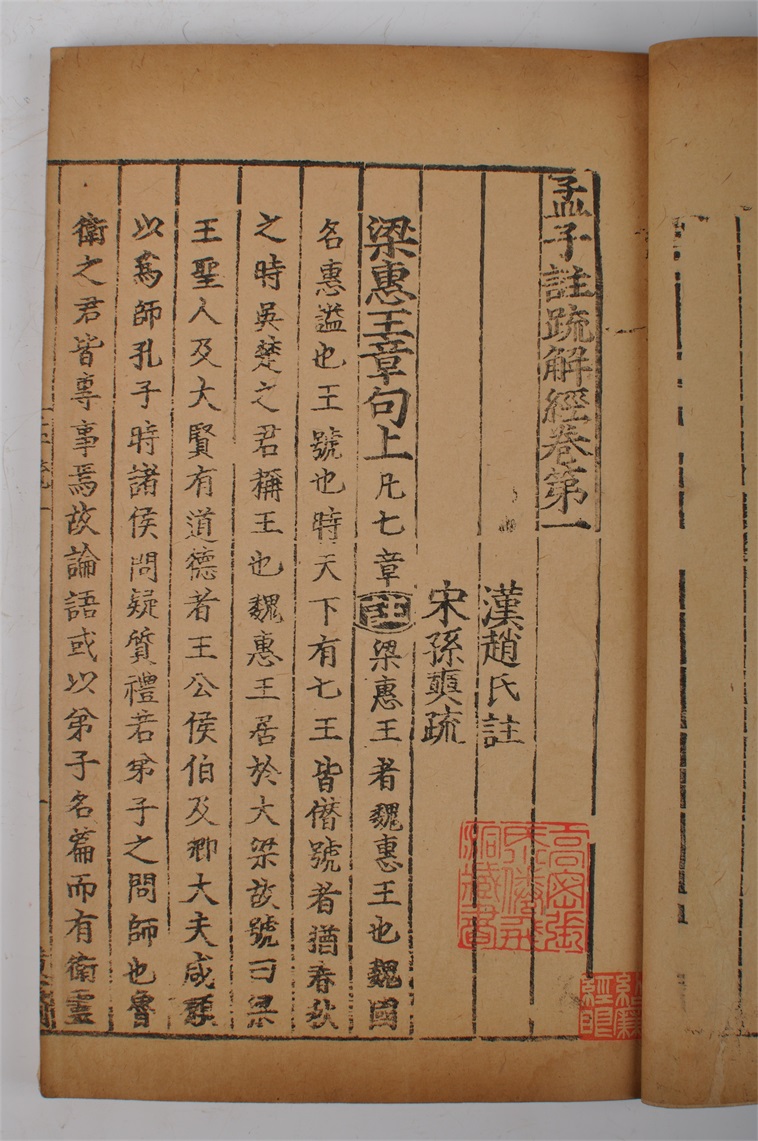 孟子註疏解經卷第一
漢趙氏註
宋孫奭疏
梁惠王章句上凡七章註梁惠王者魏惠王也魏國
名惠謚也王號也時天下有七王皆僭號者猶春秋
之時吳楚之君稱王也魏惠王居於大梁故號曰梁
王聖人及大賢有道德者王公侯伯及卿大夫咸願
以爲師孔子時諸侯問疑質禮若弟子之問師也魯
衛之君皆專事焉故論語或以弟子名篇而有衛靈
高密張
藏書
經眼